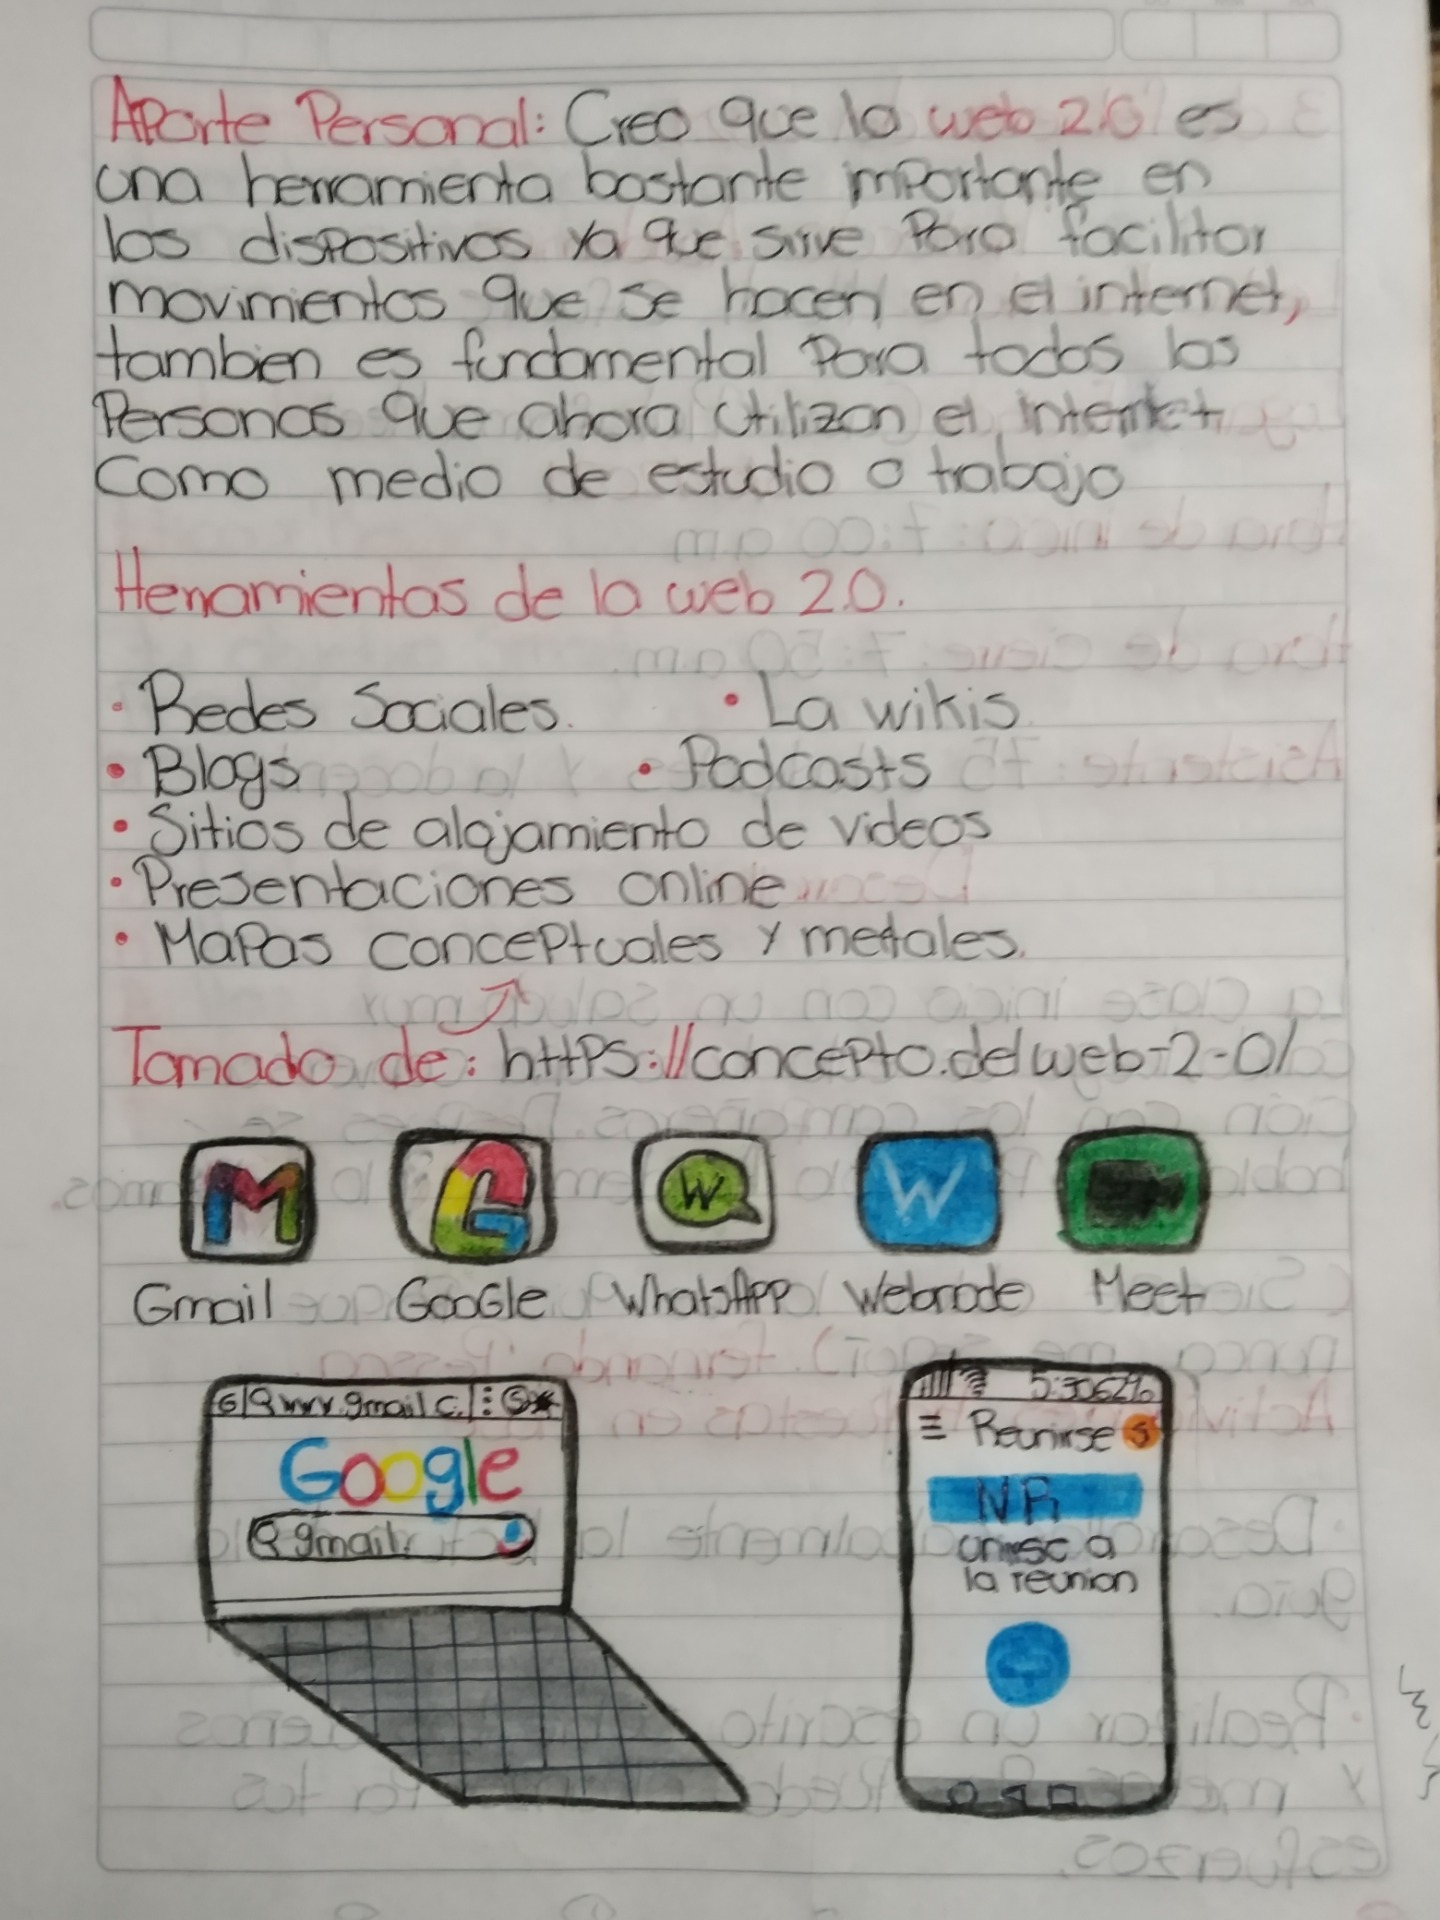 Aporte Personal: Creo que la web 2.0 es
una herramienta bastante importante en
los dispositivos ya que sirve para facilitar
movimientos que se hacen en el internet,
tambien es fundamental para todas las
Personas que ahora utilizan el internet
Como medio de estudio o trabajo
Herramientas de la web 2.0.
• Redes Sociales. • La wikis
• Blogs • Podcasts
• Sitios de alojamiento de videos
• Presentaciones online
• Mapas conceptuales y metales.
Tomado de: https://concepto.de/web-2-0/
M G W W
Gmail Google WhatsApp Webnode Meet
G www.gmail c.
Google
gmail
5:30 62%
Reunirse S
NR
unirse a
la reunion